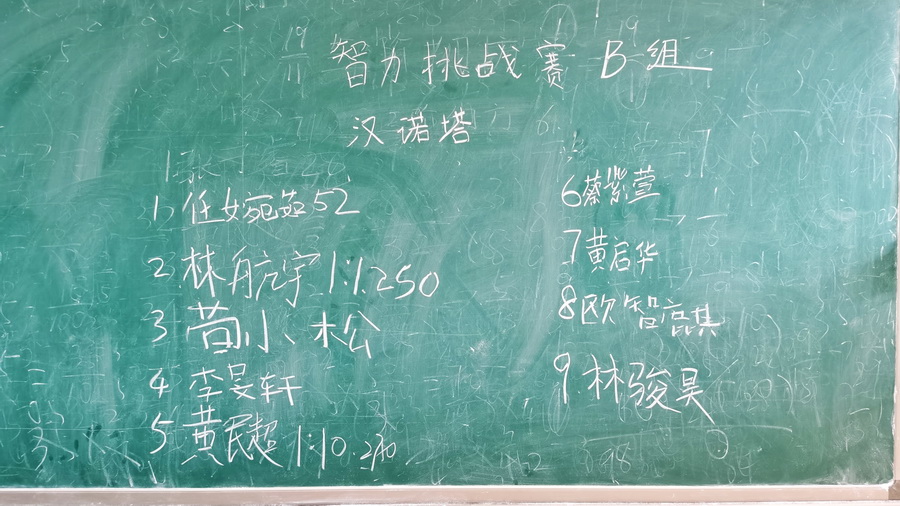 智力挑战赛 B组
汉诺塔
1. 任婉茹 52
2. 林航宇 1:1.250
3 苗小松
4 李旻轩
5. 黄民超 1:10.240
6 蔡紫萱
7 黄启华
8 欧智高
9. 林骏昊